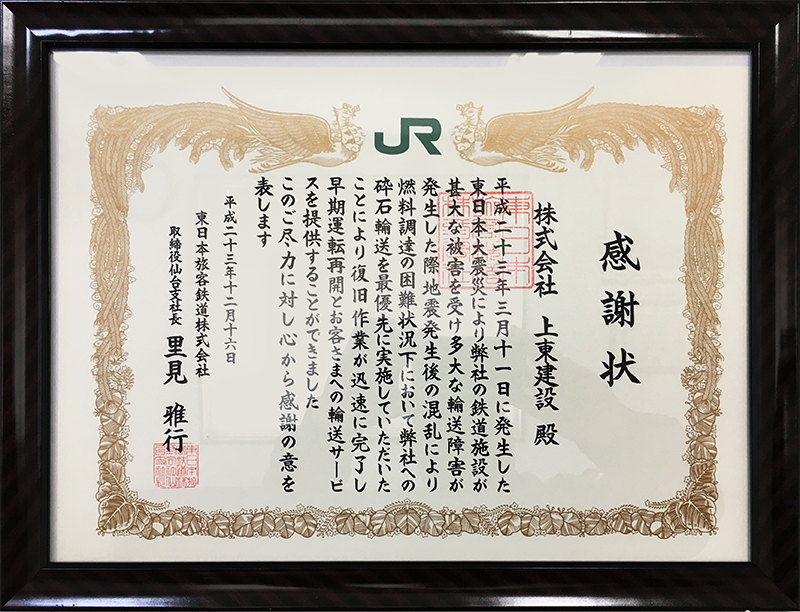 JR
感謝状
株式会社 上東建設 殿
平成二十三年三月十一日に発生した
東日本大震災により弊社の鉄道施設が
甚大な被害を受け多大な輸送障害が
発生した際地震発生後の混乱により
燃料調達の困難状況下において弊社への
砕石輸送を最優先に実施していただいた
ことにより復旧作業が迅速に完了し
早期運転再開とお客さまへの輸送サービ
スを提供することができました
このご尽力に対し心から感謝の意を
表します
平成二十三年十二月十六日
東日本旅客鉄道株式会社
取締役仙台支社長 里見 雅行